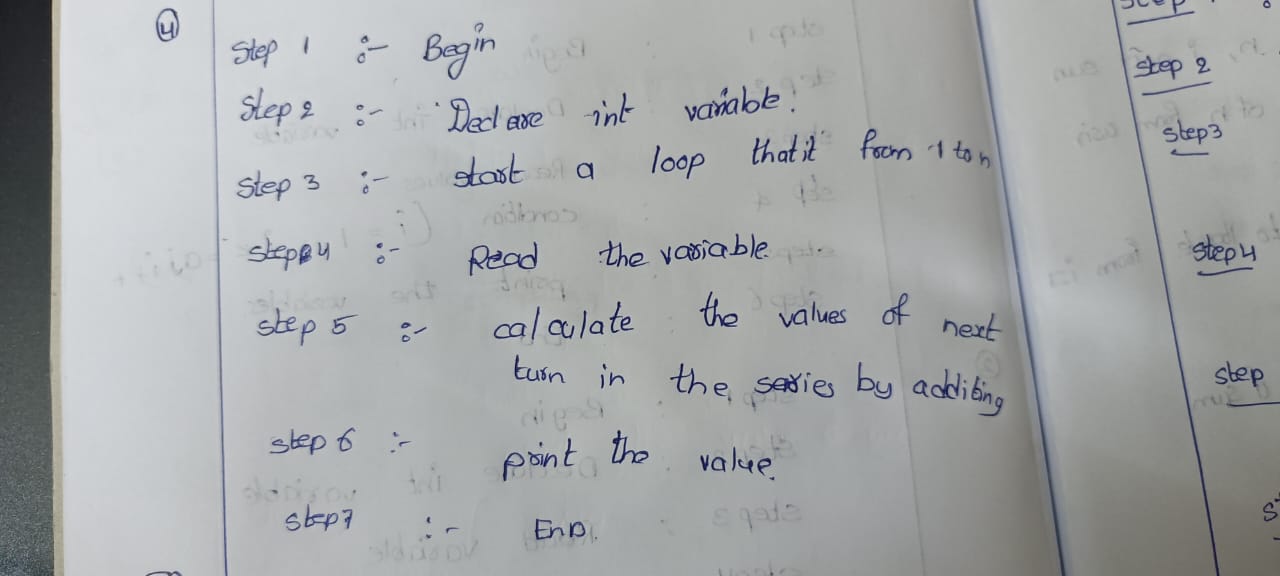 4
Step 1 :- Begin
Step 2 :- Declare int variable.
Step 3 :- start a loop that it from 1 to n
step 4 :- Read the variable.
step 5 :- calculate the values of next
turn in the series by additing
step 6 :- print the value.
step 7 :- End.
step
step 2
step3
step4
step